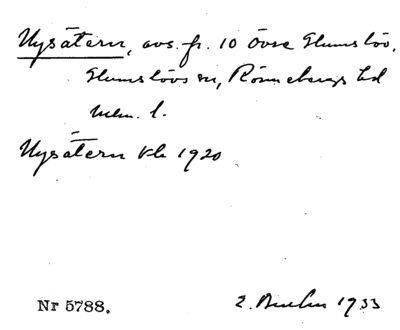 Nysätern, avs. fr. 10 Övre Glumslöv,
Glumslövs sn, Rönnebergs hd
Mlm. l.
Nysätern kb 1920
Nr 5788. 1933